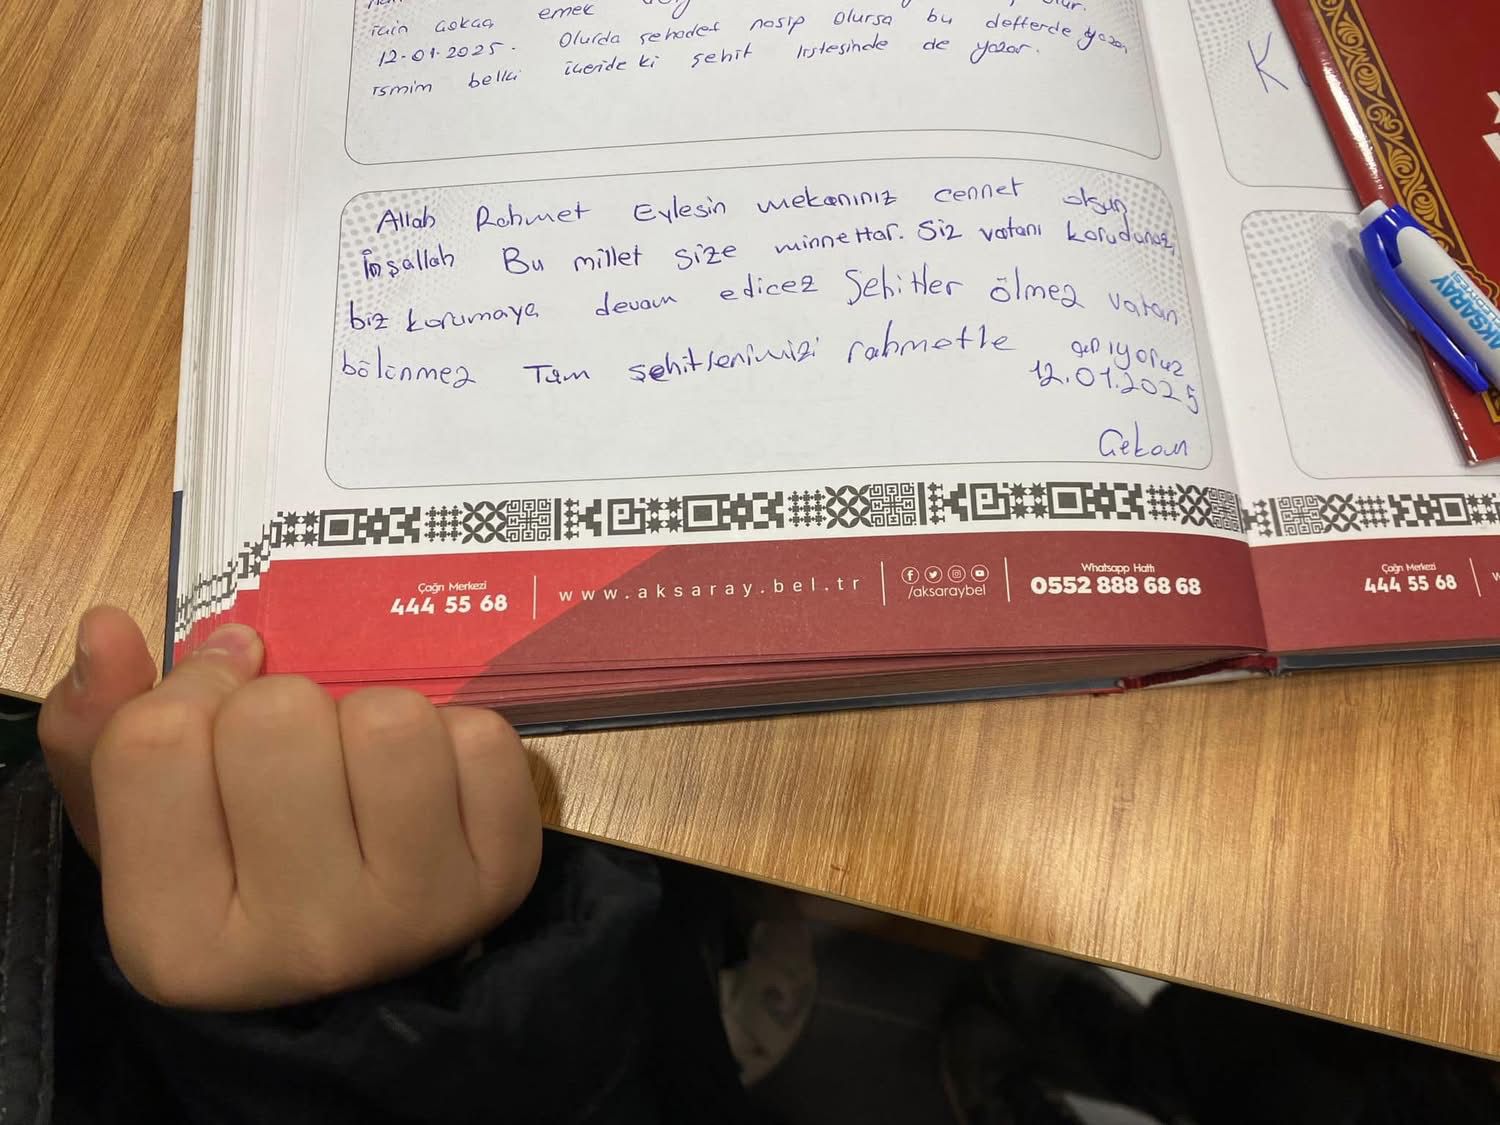 için askaq emek
12.01.2025. Olurda şehadet nasip olursa bu defterde yazan
ismim belki içerideki şehit listesinde de yazar.
Allah Rahmet Eylesin mekanınız cennet olsun
inşallah Bu millet size minnettar. Siz vatanı korudunuz,
biz korumaya devam edicez Şehitler ölmez vatan
bölünmez Tüm şehitlerimizi rahmetle anıyoruz
12.01.2025
Gekom
Çağrı Merkezi
444 55 68
www.aksaray.bel.tr
/aksaraybel
Whatsapp Hattı
0552 888 68 68
K
AKSARAY
BELEDİYESİ
Çağrı Merkezi
444 55 68